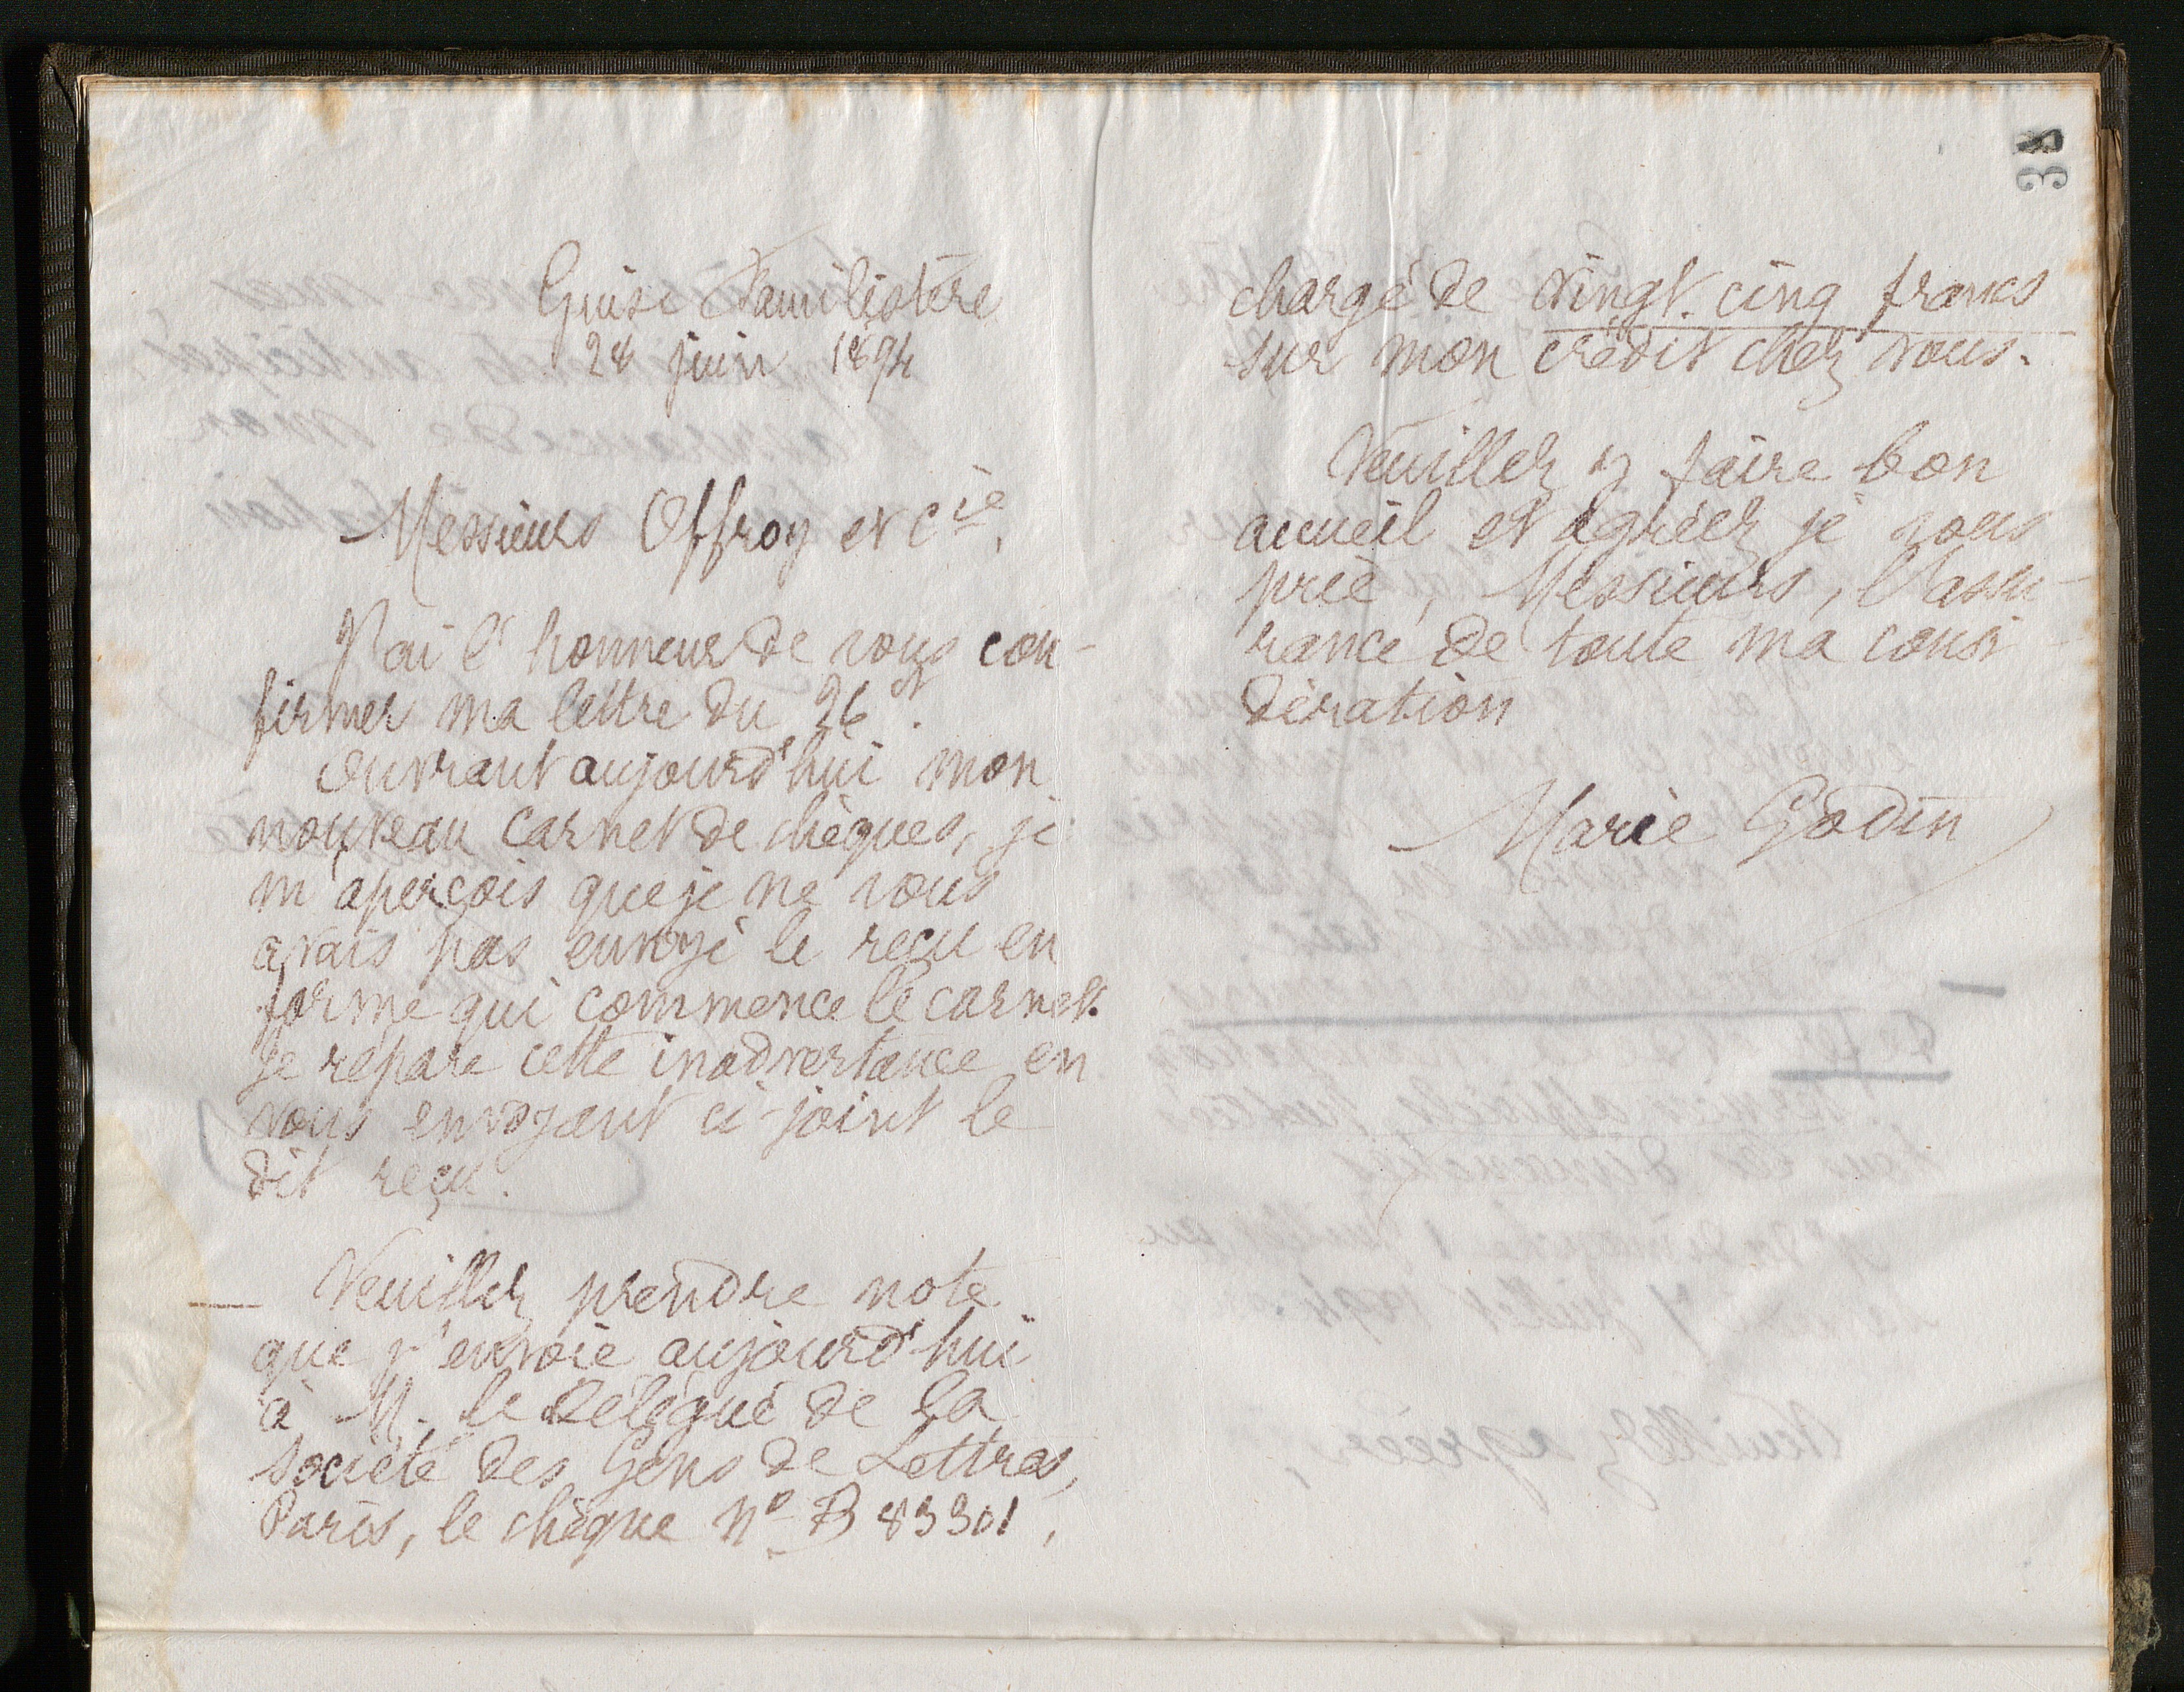 38
Guise Familistère
28 juin 1894
Messieurs Offroy et Cie,
J'ai l'honneur de vous con-
firmer ma lettre du 26 ct.
Ouvrant aujourd'hui mon
nouveau carnet de chèques, je
m'aperçois que je ne vous
avais pas envoyé le reçu en
forme qui commence le carnet.
Je répare cette inadvertance en
vous envoyant ci-joint le
dit reçu.
Veuillez prendre note
que j'envoie aujourd'hui
à M. le Délégué de la
Société des Gens de Lettres,
Paris, le chèque No B 83301,
chargé de vingt-cinq francs
sur mon crédit chez vous.
Veuillez y faire bon
accueil et agréez je vous
prie, Messieurs, l'assu-
rance de toute ma consi-
dération
Marie Godin